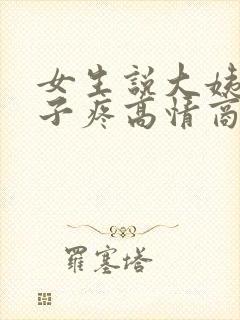 女生說大姨
子疼高情商
羅塞塔